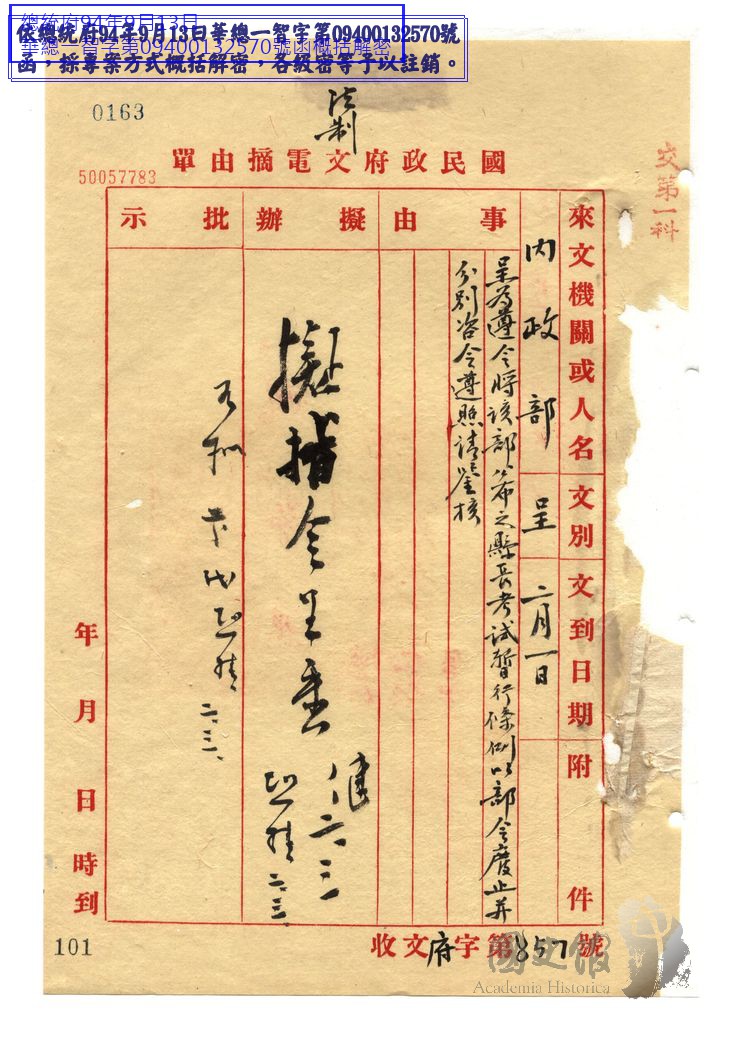 總統府94年9月13日
華總一智字第09400132570號函概括解密
依總統府94年9月13日華總一智字第09400132570號
函，採專案方式概括解密，各級密等予以註銷。
0163
法制
交第一科
國民政府文電摘由單
50057783
來文機關或人名
文別
文到日期
附件
內政部
呈
二月一日
事由
呈為遵令將該部公布之縣長考試暫行條例以部令廢止并
分別咨令遵照請鑒核
擬辦
擬指令呈悉
二、三、
批示
二、三、
年月日時到
收文府字第857號
101
國史館
Academia Historica